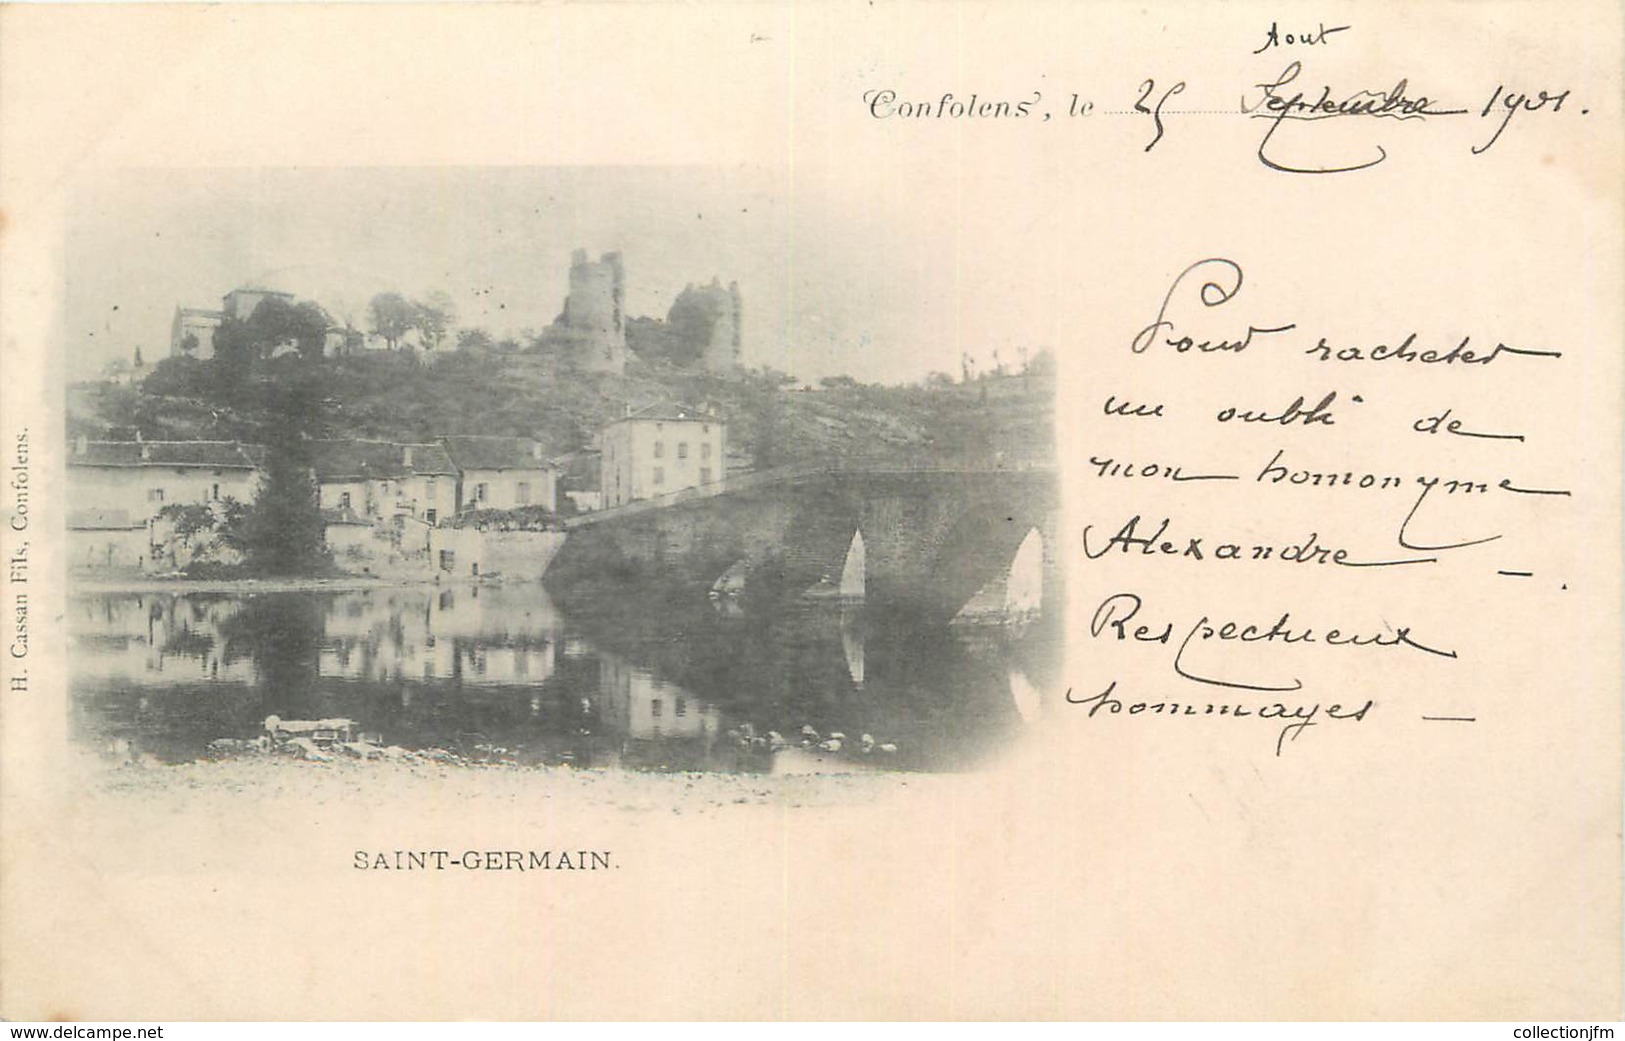 Aout
Confolens, le 25 Septembre 1901.
Pour racheter
un oubli de
mon homonyme
Alexandre — .
Respectueux
hommages —
H. Cassan Fils, Confolens.
SAINT-GERMAIN.
www.delcampe.net
collectionjfm